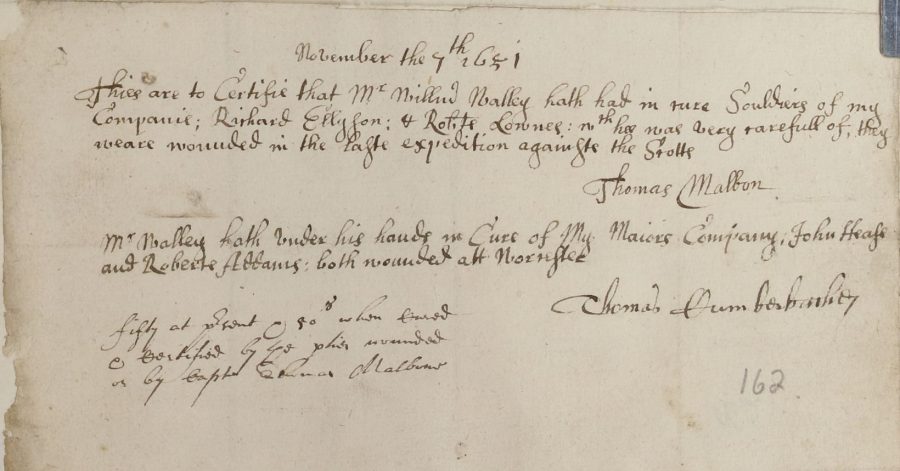 November the 7th 1651
Thies are to Certifie that Mr Willm Walley hath had in cure Souldiers of my
Companie; Richard Ellyson; & Robte Lownes: wth hee was very carefull of, they
weare wounded in the laste expedition againste the Scotts
Thomas Malbon
Mr Walley hath under his hands in Cure of My Maiors Company, John Heaze
and Roberte Addams: both wounded att Worcster
Thomas
fifty at psent & 50s when Cured
& Certified by ye pties wounded
or by Capt Thomas Malbone
162